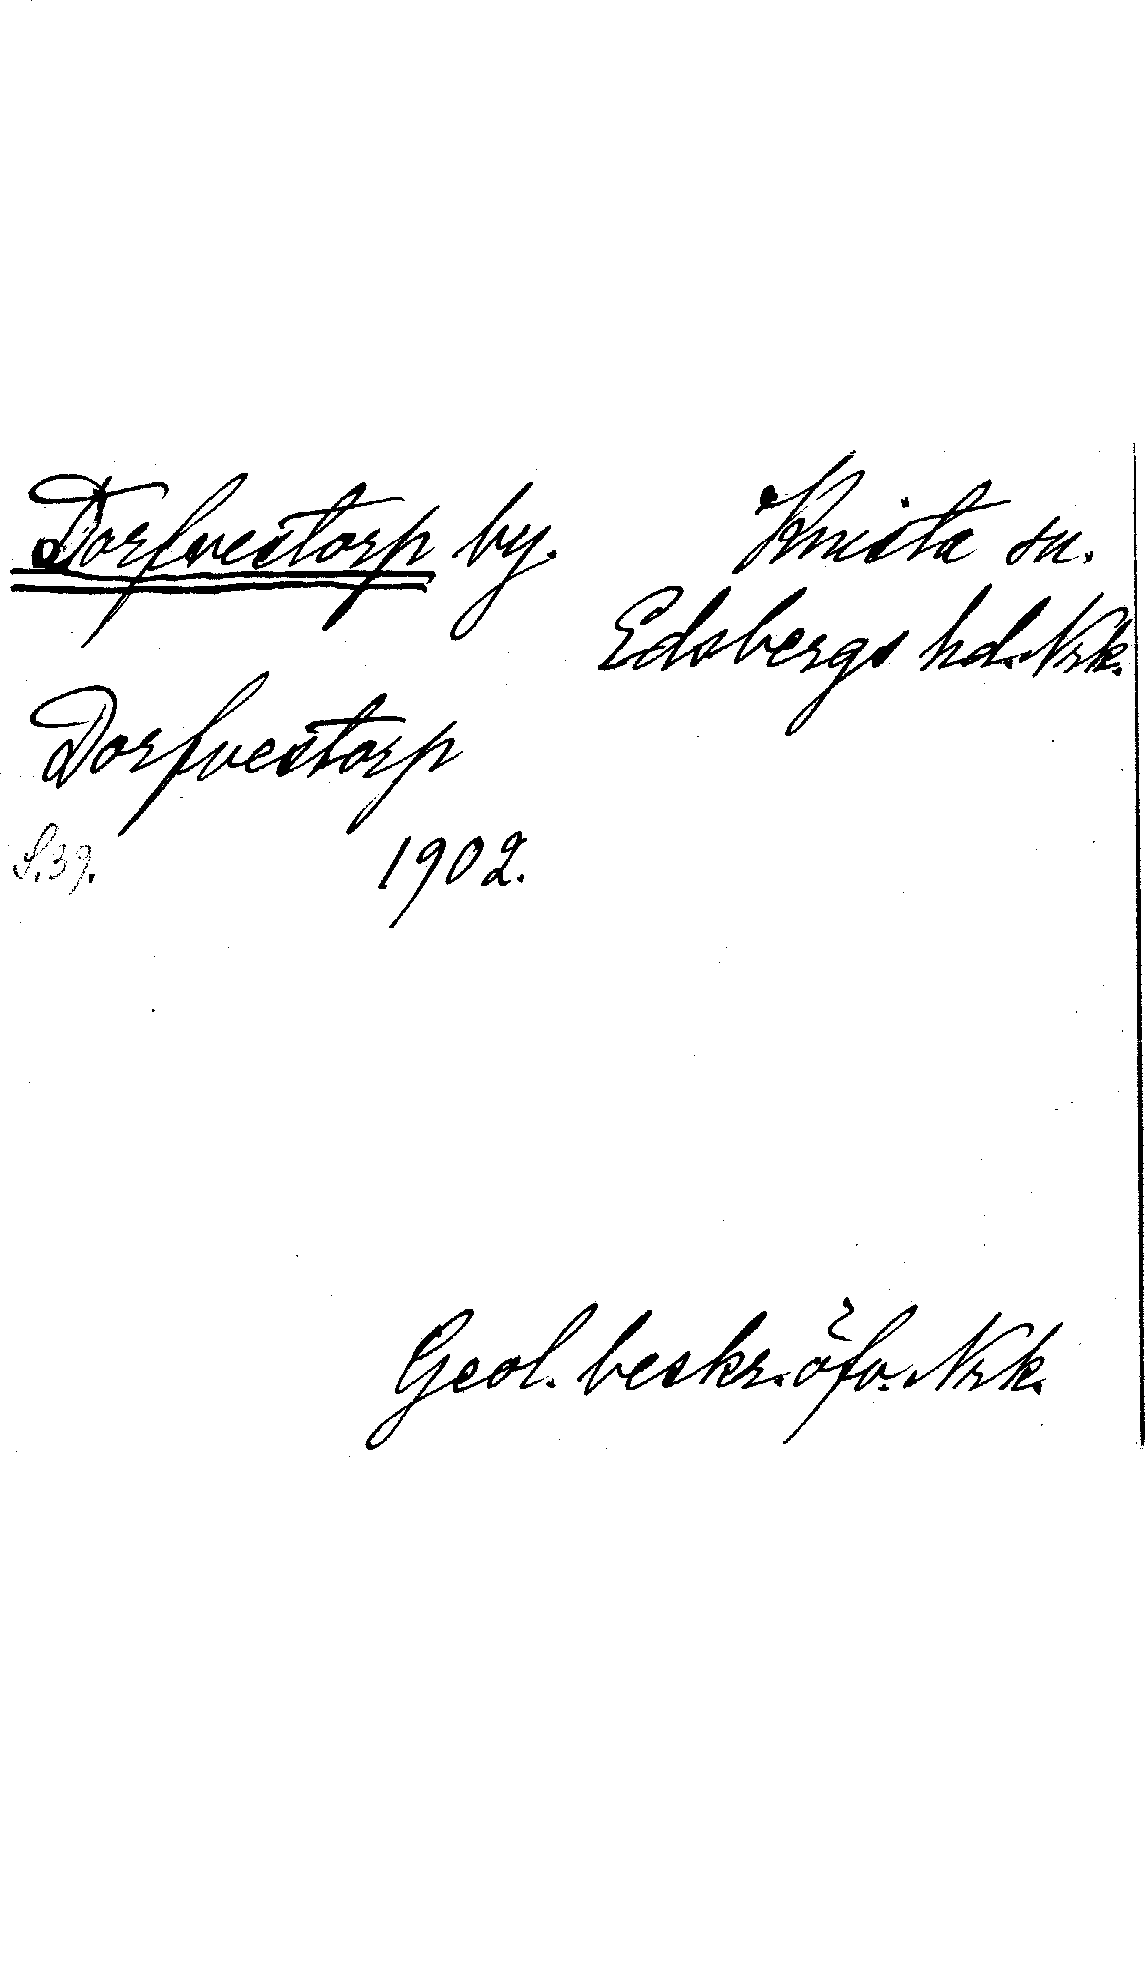 Dorfvestorp by.
Knista sn.
Edsbergs hd. Nrk.
Dorfvestorp
S. 39.
1902.
Geol. beskr. öfv. Nrk.